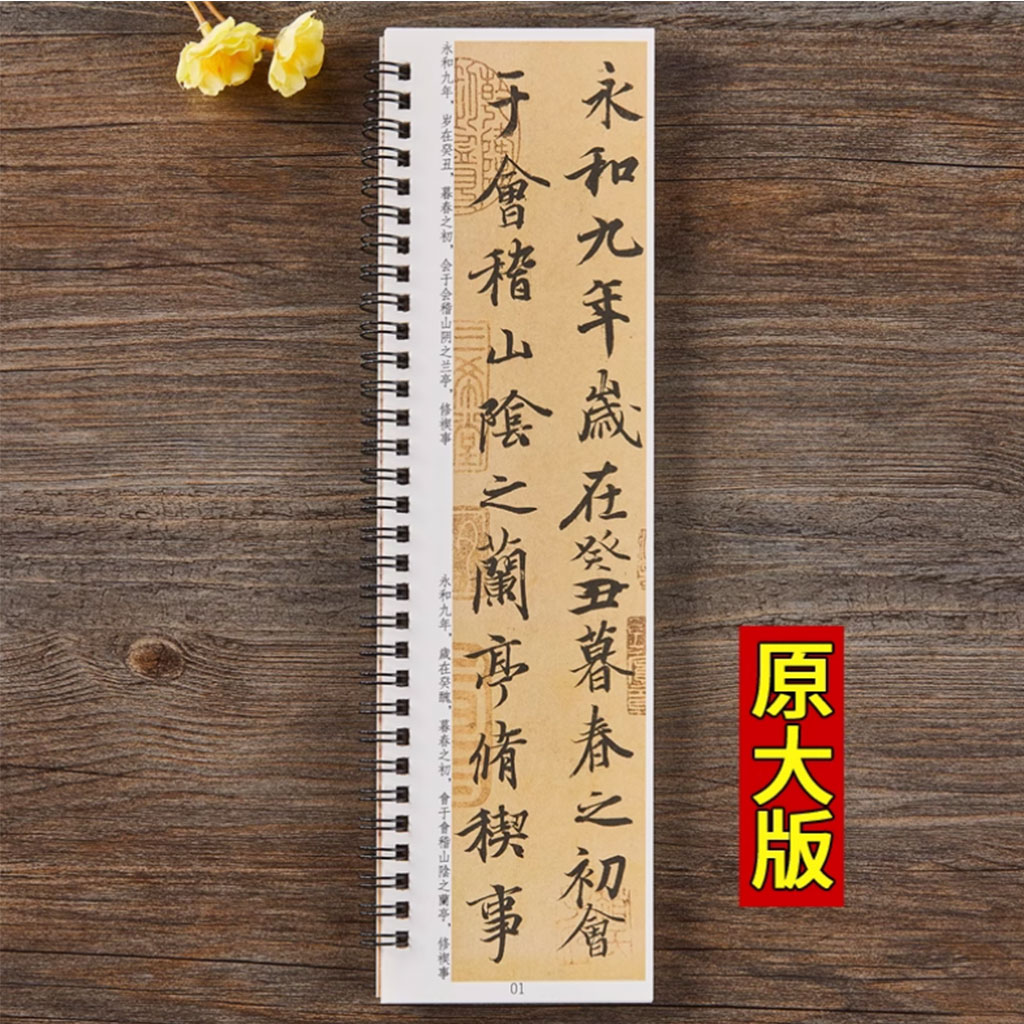 永和九年歲在癸丑暮春之初會
于會稽山陰之蘭亭脩稧事
永和九年，岁在癸丑，暮春之初，会于会稽山阴之兰亭，修稧事
永和九年，歲在癸醜，暮春之初，會于會稽山陰之蘭亭，修稧事
01
原大版